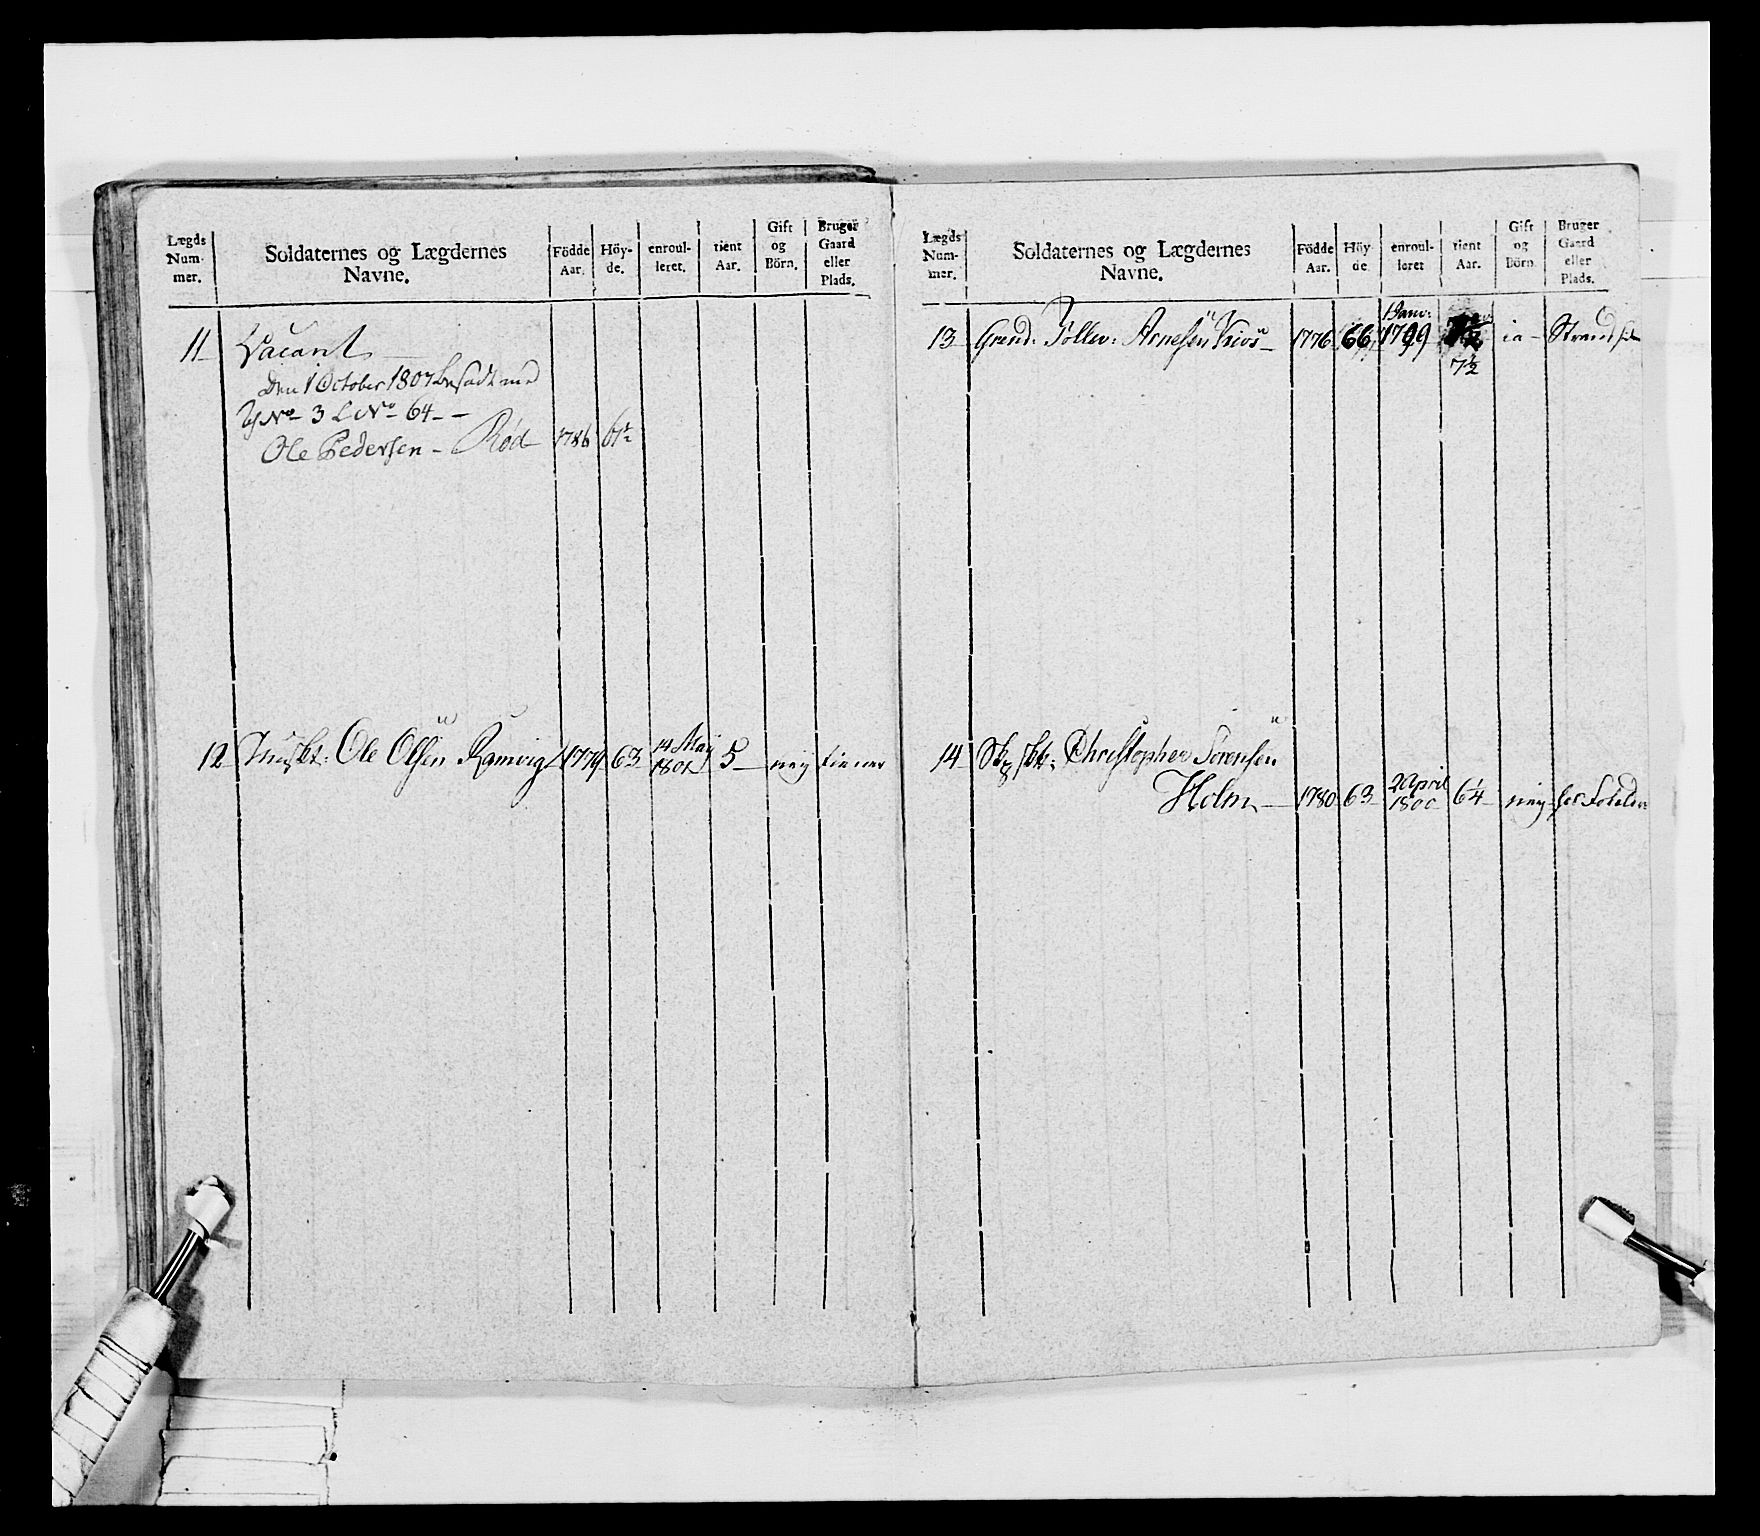 Lægds Num- mer.
Soldaternes og Lægdernes Navne.
Födde Aar.
Höy- de.
enroul- leret.
tient Aar.
Gift og Börn.
Bruger Gaard eller Plads.
11 Vacant
Den 1 October 1807 besadt med
No 3 L No 64
Ole Pedersen - Röd 1786
12 Musket: Ole Olsen Ramvig 1779 63 14 May 1801 5 ney tiener
Lægds Num- mer.
Soldaternes og Lægdernes Navne.
Födde Aar.
Höy- de
enroul- leret
tient Aar.
Gift og Börn
Bruger Gaard eller Plads.
13 Grend: Tollev: Arnesen 1776 66 1 Janv: 1799
7½ ia
14 Christopher Sörensen
Holm 1780 63 2 April 1800 6¼ ney hos